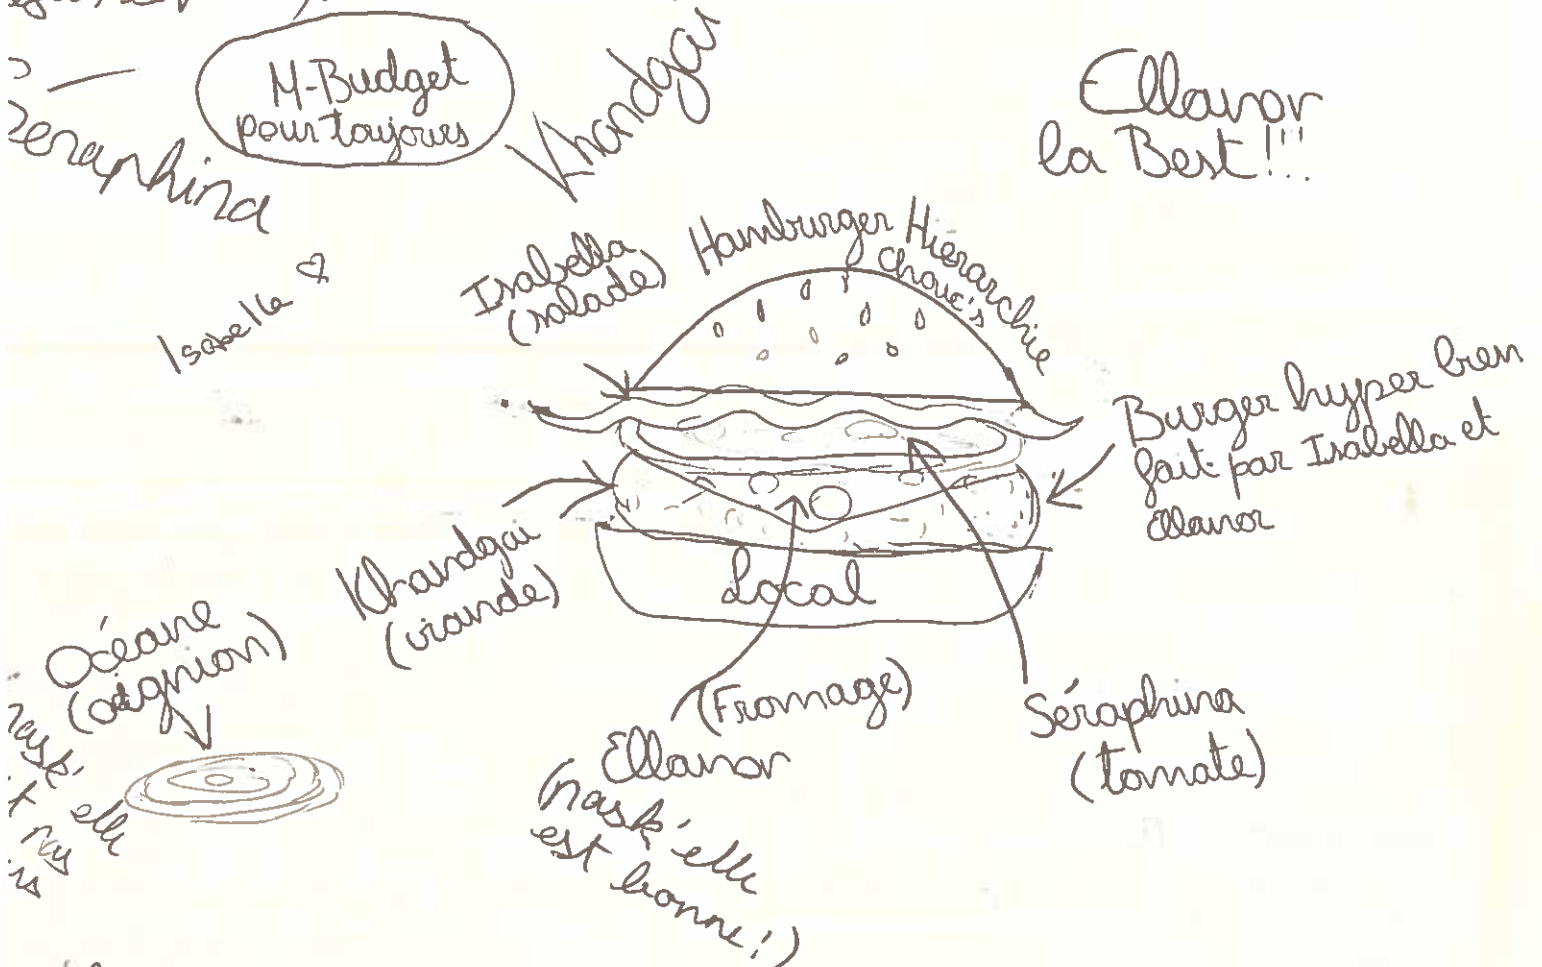 M-Budget
pour toujours
Khandgai
Ellanor
la Best!!!
Seraphina
Isabella
(salade)
Hamburger Hierarchie
Chouc's
Isabella ♡
Burger hyper bien
fait par Isabella et
Ellanor
Local
Khandgai
(viande)
Océane
(oignion)
(Fromage)
Ellanor
(pask'elle
est bonne!)
Séraphina
(tomate)
pask'
elle